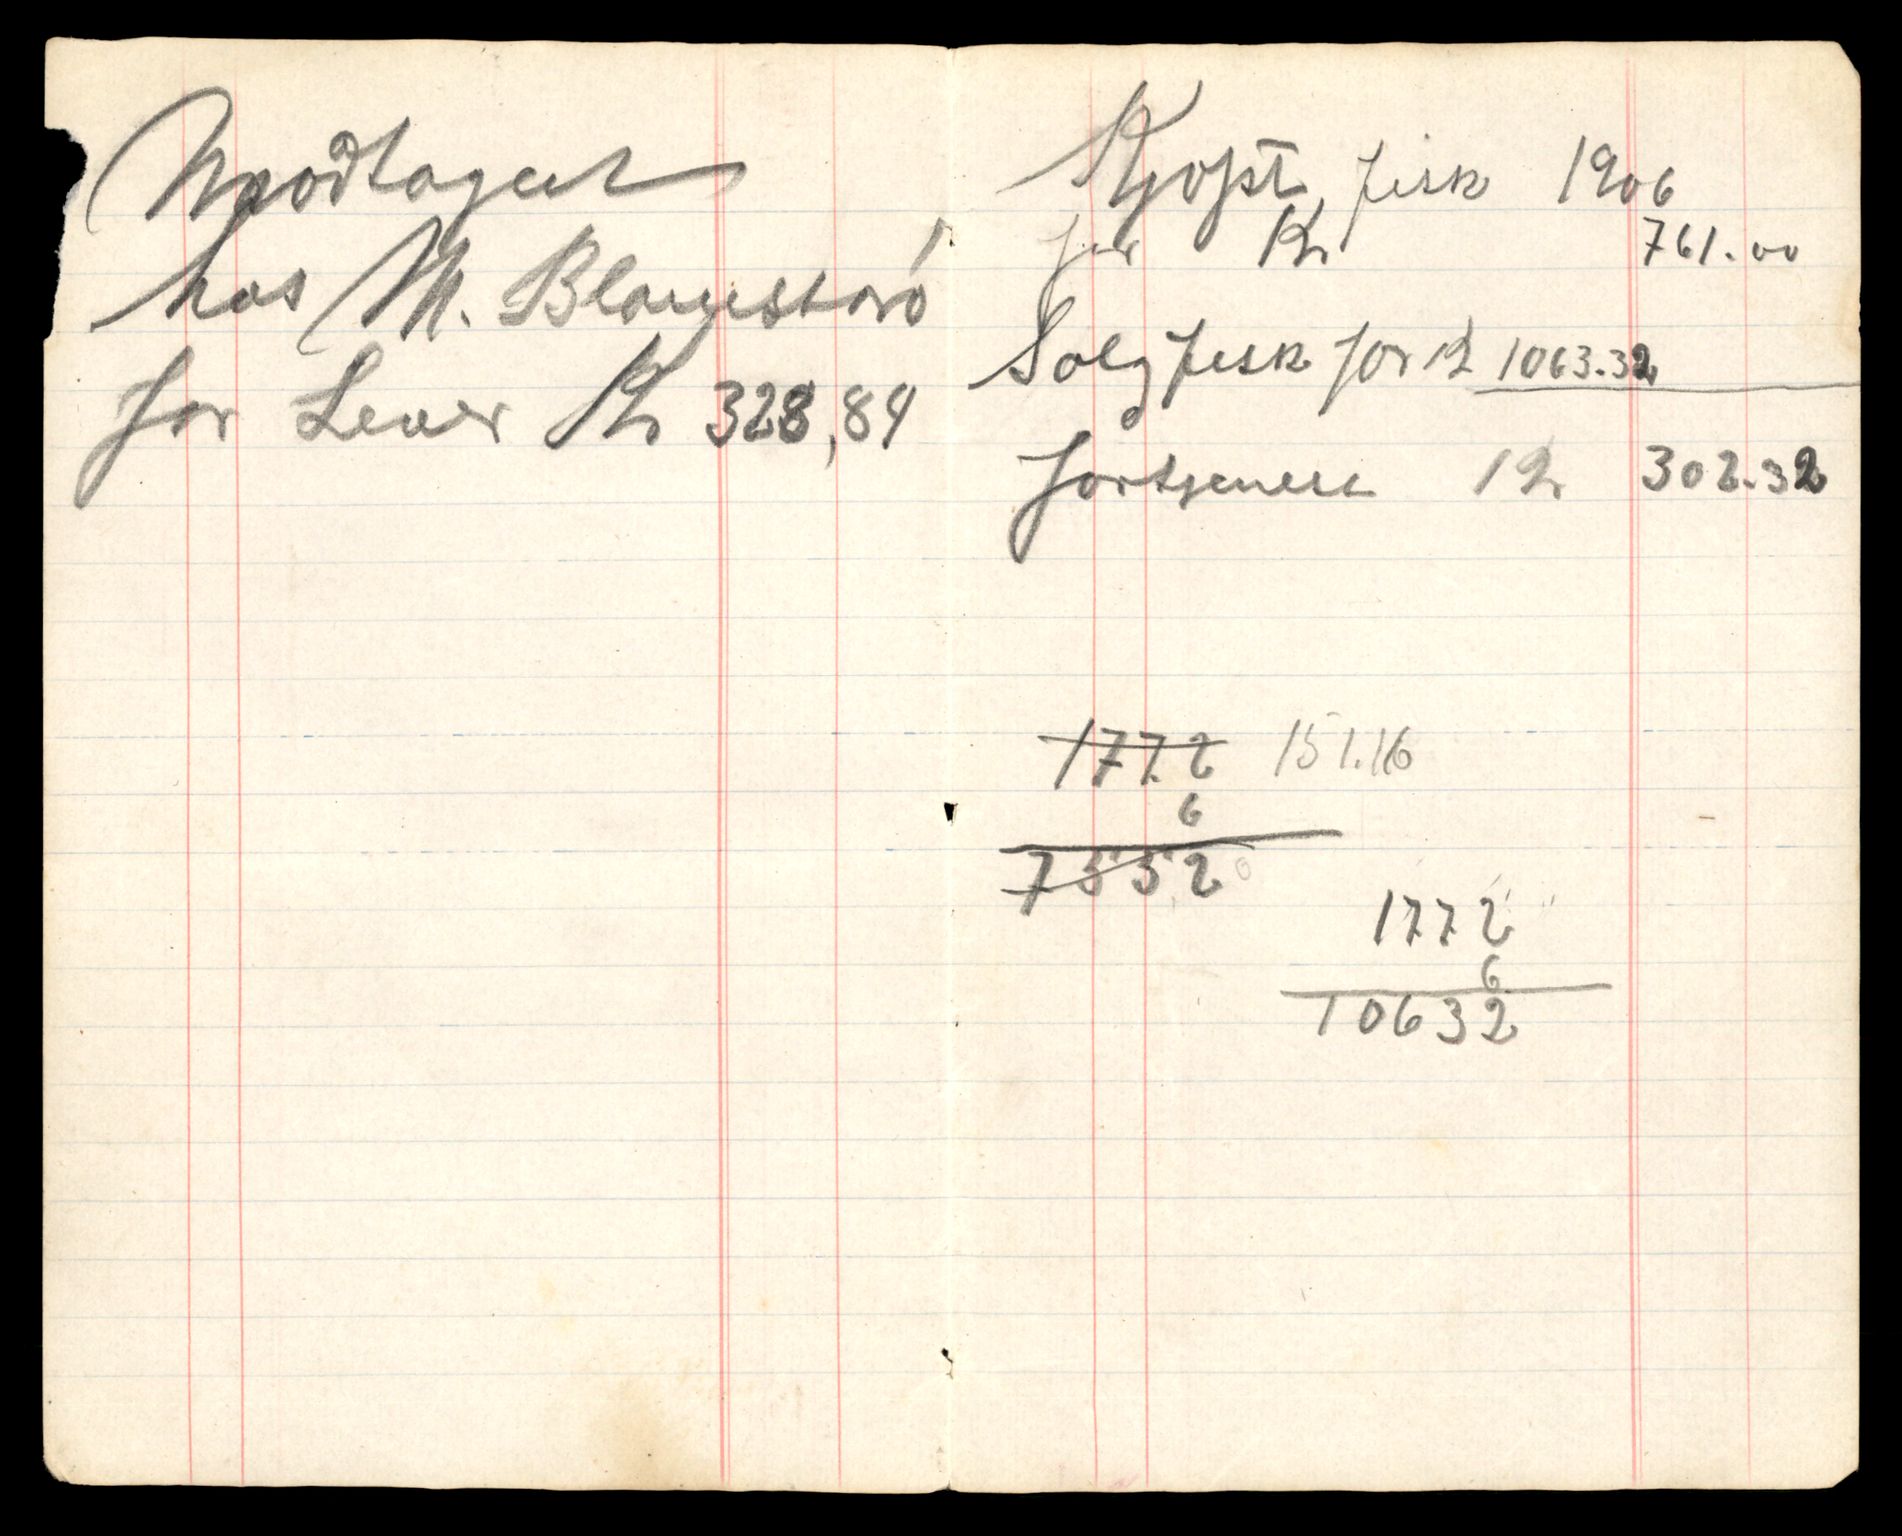 Modtaget
hos M. Blomstrø
for Lever Kr 328,84
Kjøpt fisk 1906
for Kr 761.00
Solg fisk for Kr 1063.32
fortjeneste Kr 302.32
1772 151.16
6
7552
1772
6
10632